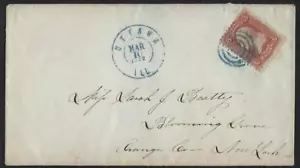 OTTAWA
MAR
ILL
Miss Sarah J.
Blooming Grove
Orange Co. New York